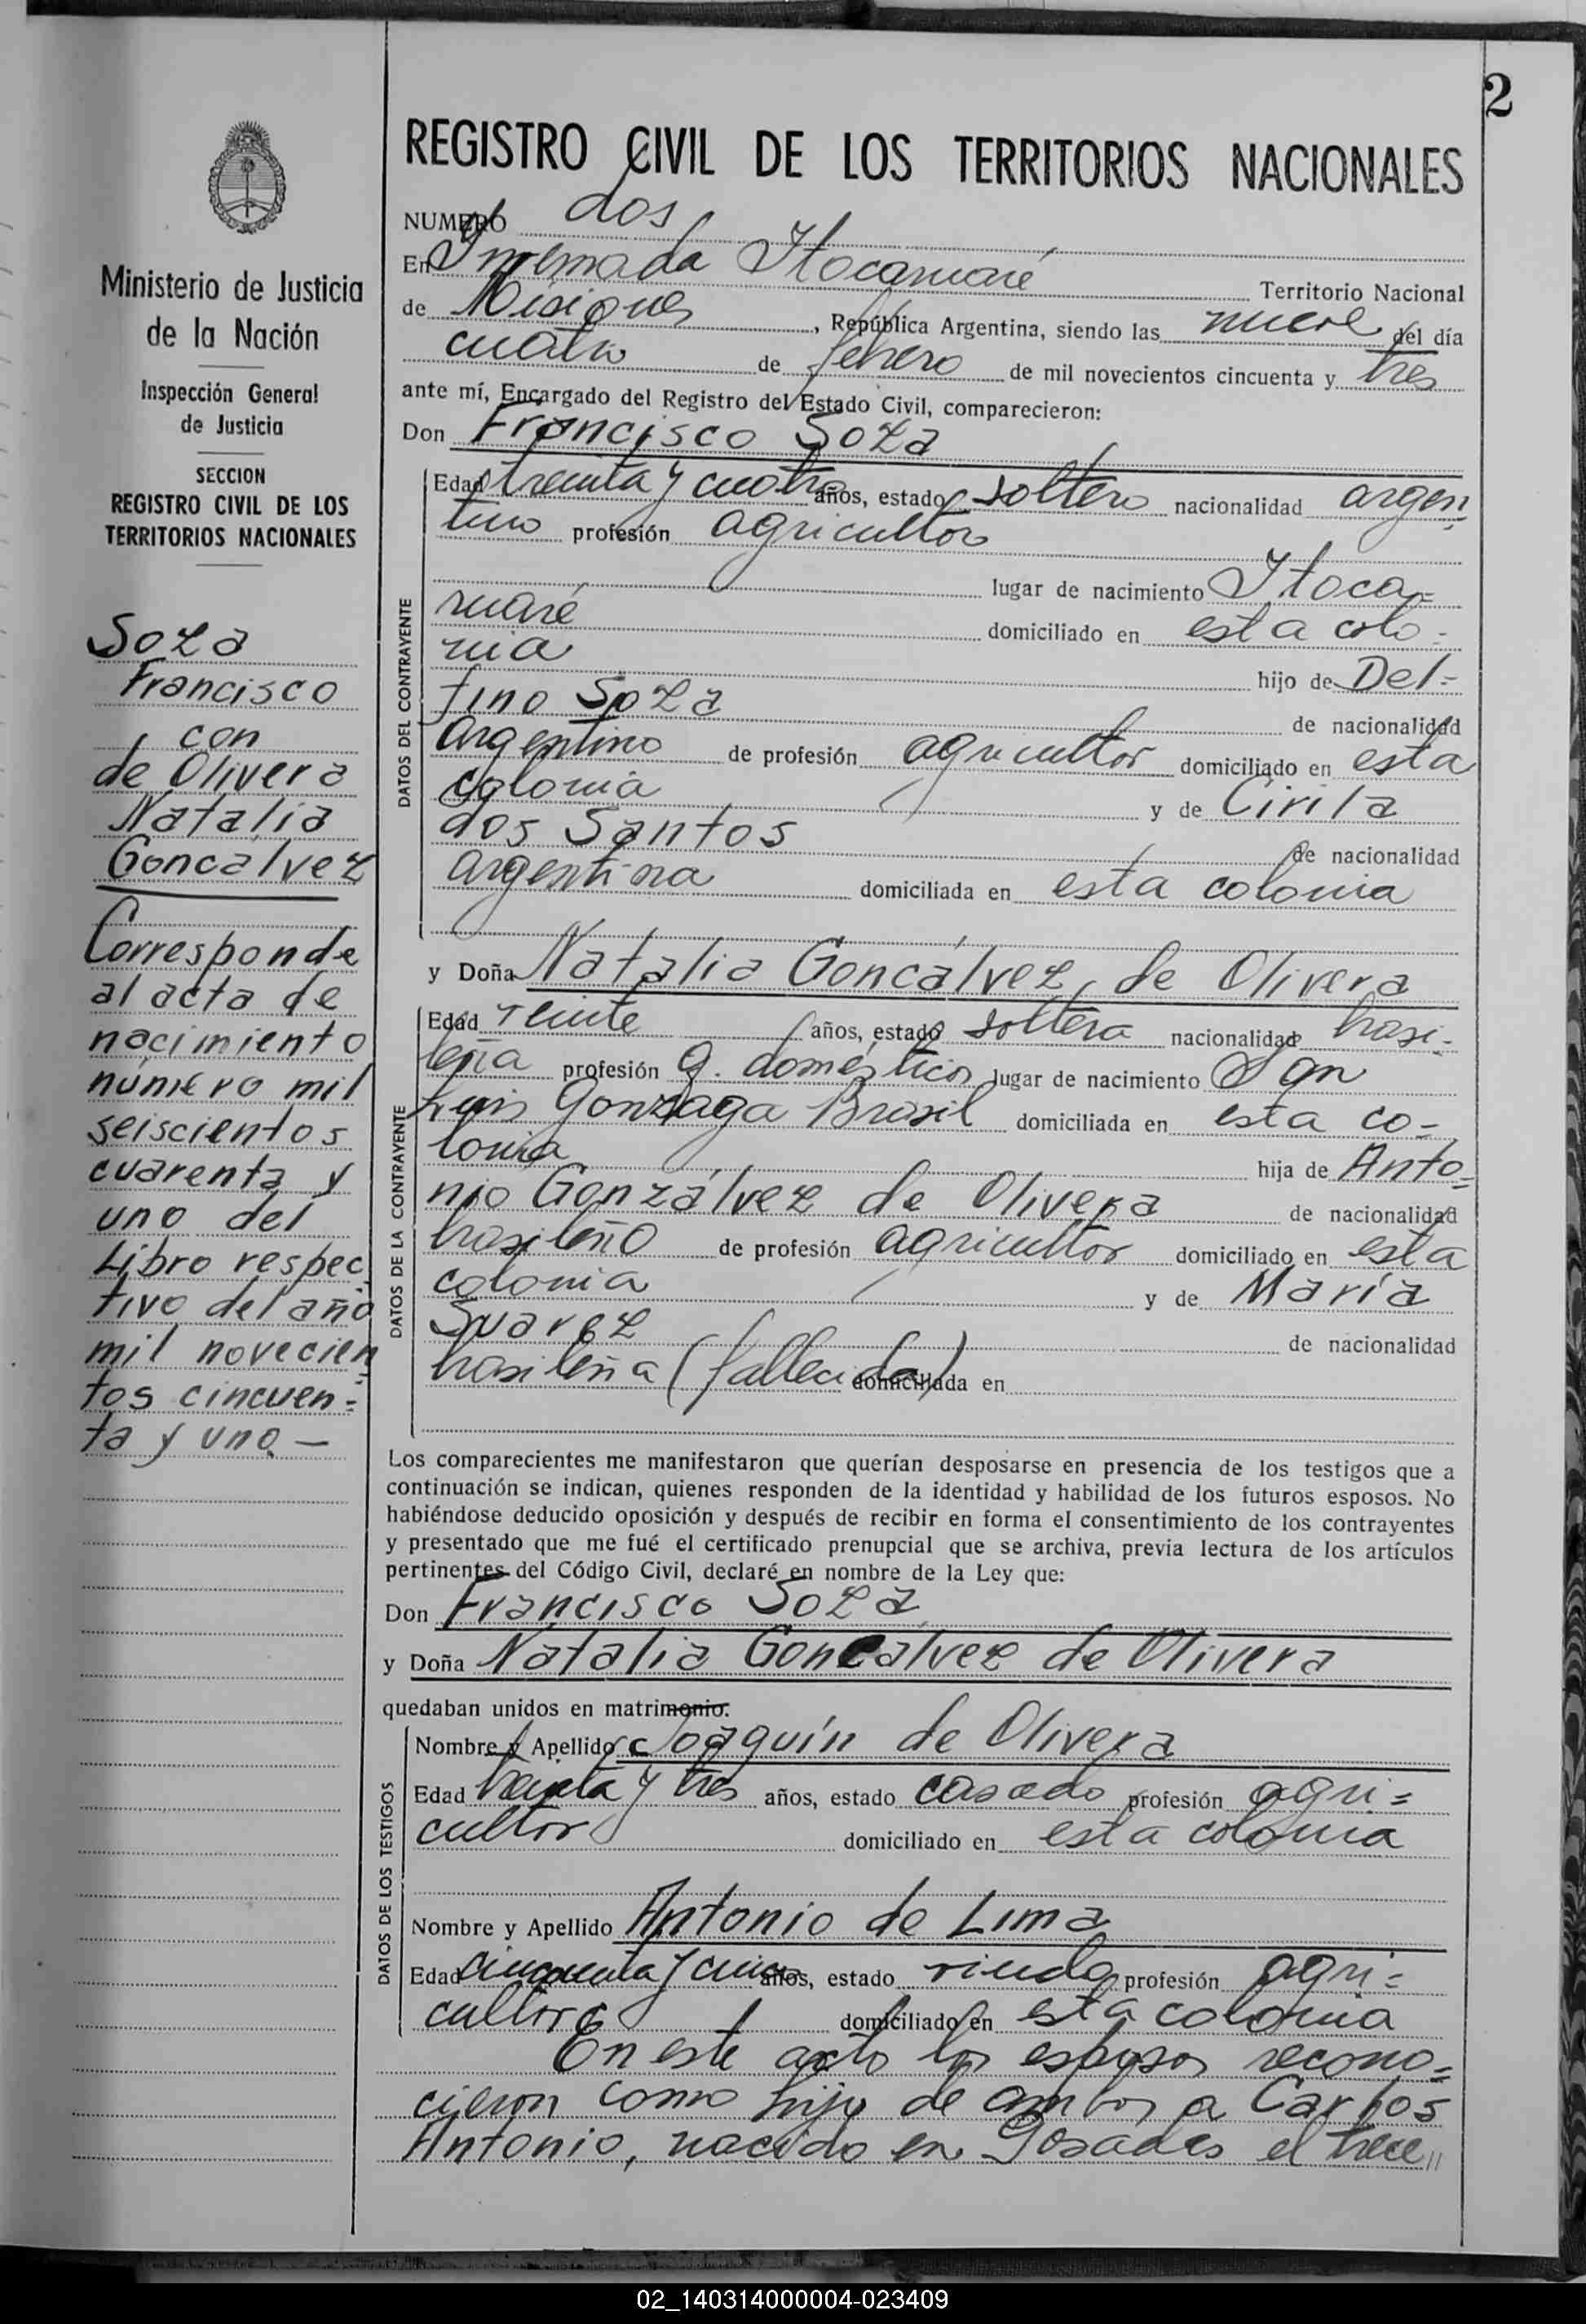 2
REGISTRO CIVIL DE LOS TERRITORIOS NACIONALES
Ministerio de Justicia
de la Nación
Inspección General
de Justicia
SECCION
REGISTRO CIVIL DE LOS
TERRITORIOS NACIONALES
Soza
Francisco
con
de Olivera
Natalia
Goncalvez
Corresponde
al acta de
nacimiento
número mil
seiscientos
cuarenta y
uno del
Libro respec
tivo del año
mil novecien
tos cincuen=
ta y uno.—
NUMERO dos
En Itacaruaré Territorio Nacional
de Misiones, República Argentina, siendo las nueve del día
cuatro de febrero de mil novecientos cincuenta y tres
ante mí, Encargado del Registro del Estado Civil, comparecieron:
Don Francisco Soza
DATOS DEL CONTRAYENTE
Edad treinta y cuatro años, estado soltero nacionalidad argen
tino profesión agricultor
lugar de nacimiento Itaca=
ruaré domiciliado en esta colo-
nia hijo de Del=
fino Soza de nacionalidad
argentino de profesión agricultor domiciliado en esta
colonia y de Cirila
dos Santos de nacionalidad
argentina domiciliada en esta colonia
y Doña Natalia Goncálvez de Olivera
DATOS DE LA CONTRAYENTE
Edad veinte años, estado soltera nacionalidad brasi-
leña profesión q. domésticos lugar de nacimiento San
Luis Gonzaga Brasil domiciliada en esta co=
lonia hija de Anto=
nio Gonzálvez de Olivera de nacionalidad
brasileño de profesión agricultor domiciliado en esta
colonia y de María
Suarez de nacionalidad
brasileña (fallecida) domiciliada en
Los comparecientes me manifestaron que querían desposarse en presencia de los testigos que a
continuación se indican, quienes responden de la identidad y habilidad de los futuros esposos. No
habiéndose deducido oposición y después de recibir en forma el consentimiento de los contrayentes
y presentado que me fué el certificado prenupcial que se archiva, previa lectura de los artículos
pertinentes del Código Civil, declaré en nombre de la Ley que:
Don Francisco Soza
y Doña Natalia Goncalvez de Olivera
quedaban unidos en matrimonio.
DATOS DE LOS TESTIGOS
Nombre y Apellido Joaquín de Olivera
Edad treinta y tres años, estado casado profesión agri=
cultor domiciliado en esta colonia
Nombre y Apellido Antonio de Lima
Edad cincuenta y años, estado viudo profesión agri=
cultor domiciliado en esta colonia
En este acto los esposos recono=
cieron como hijo de ambos a Carlos
Antonio, nacido en Posadas el trece //
02_140314000004-023409